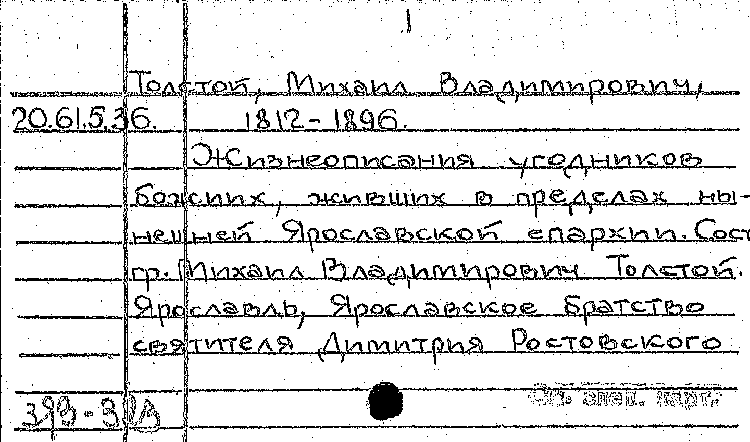 1
Толстой, Михаил Владимирович,
20.61.5.36. 1812-1896.
Жизнеописания угодников
божиих, живших в пределах ны-
нешней Ярославской епархии. Сост.
гр. Михаил Владимирович Толстой.
Ярославль, Ярославское братство
святителя Димитрия Ростовского